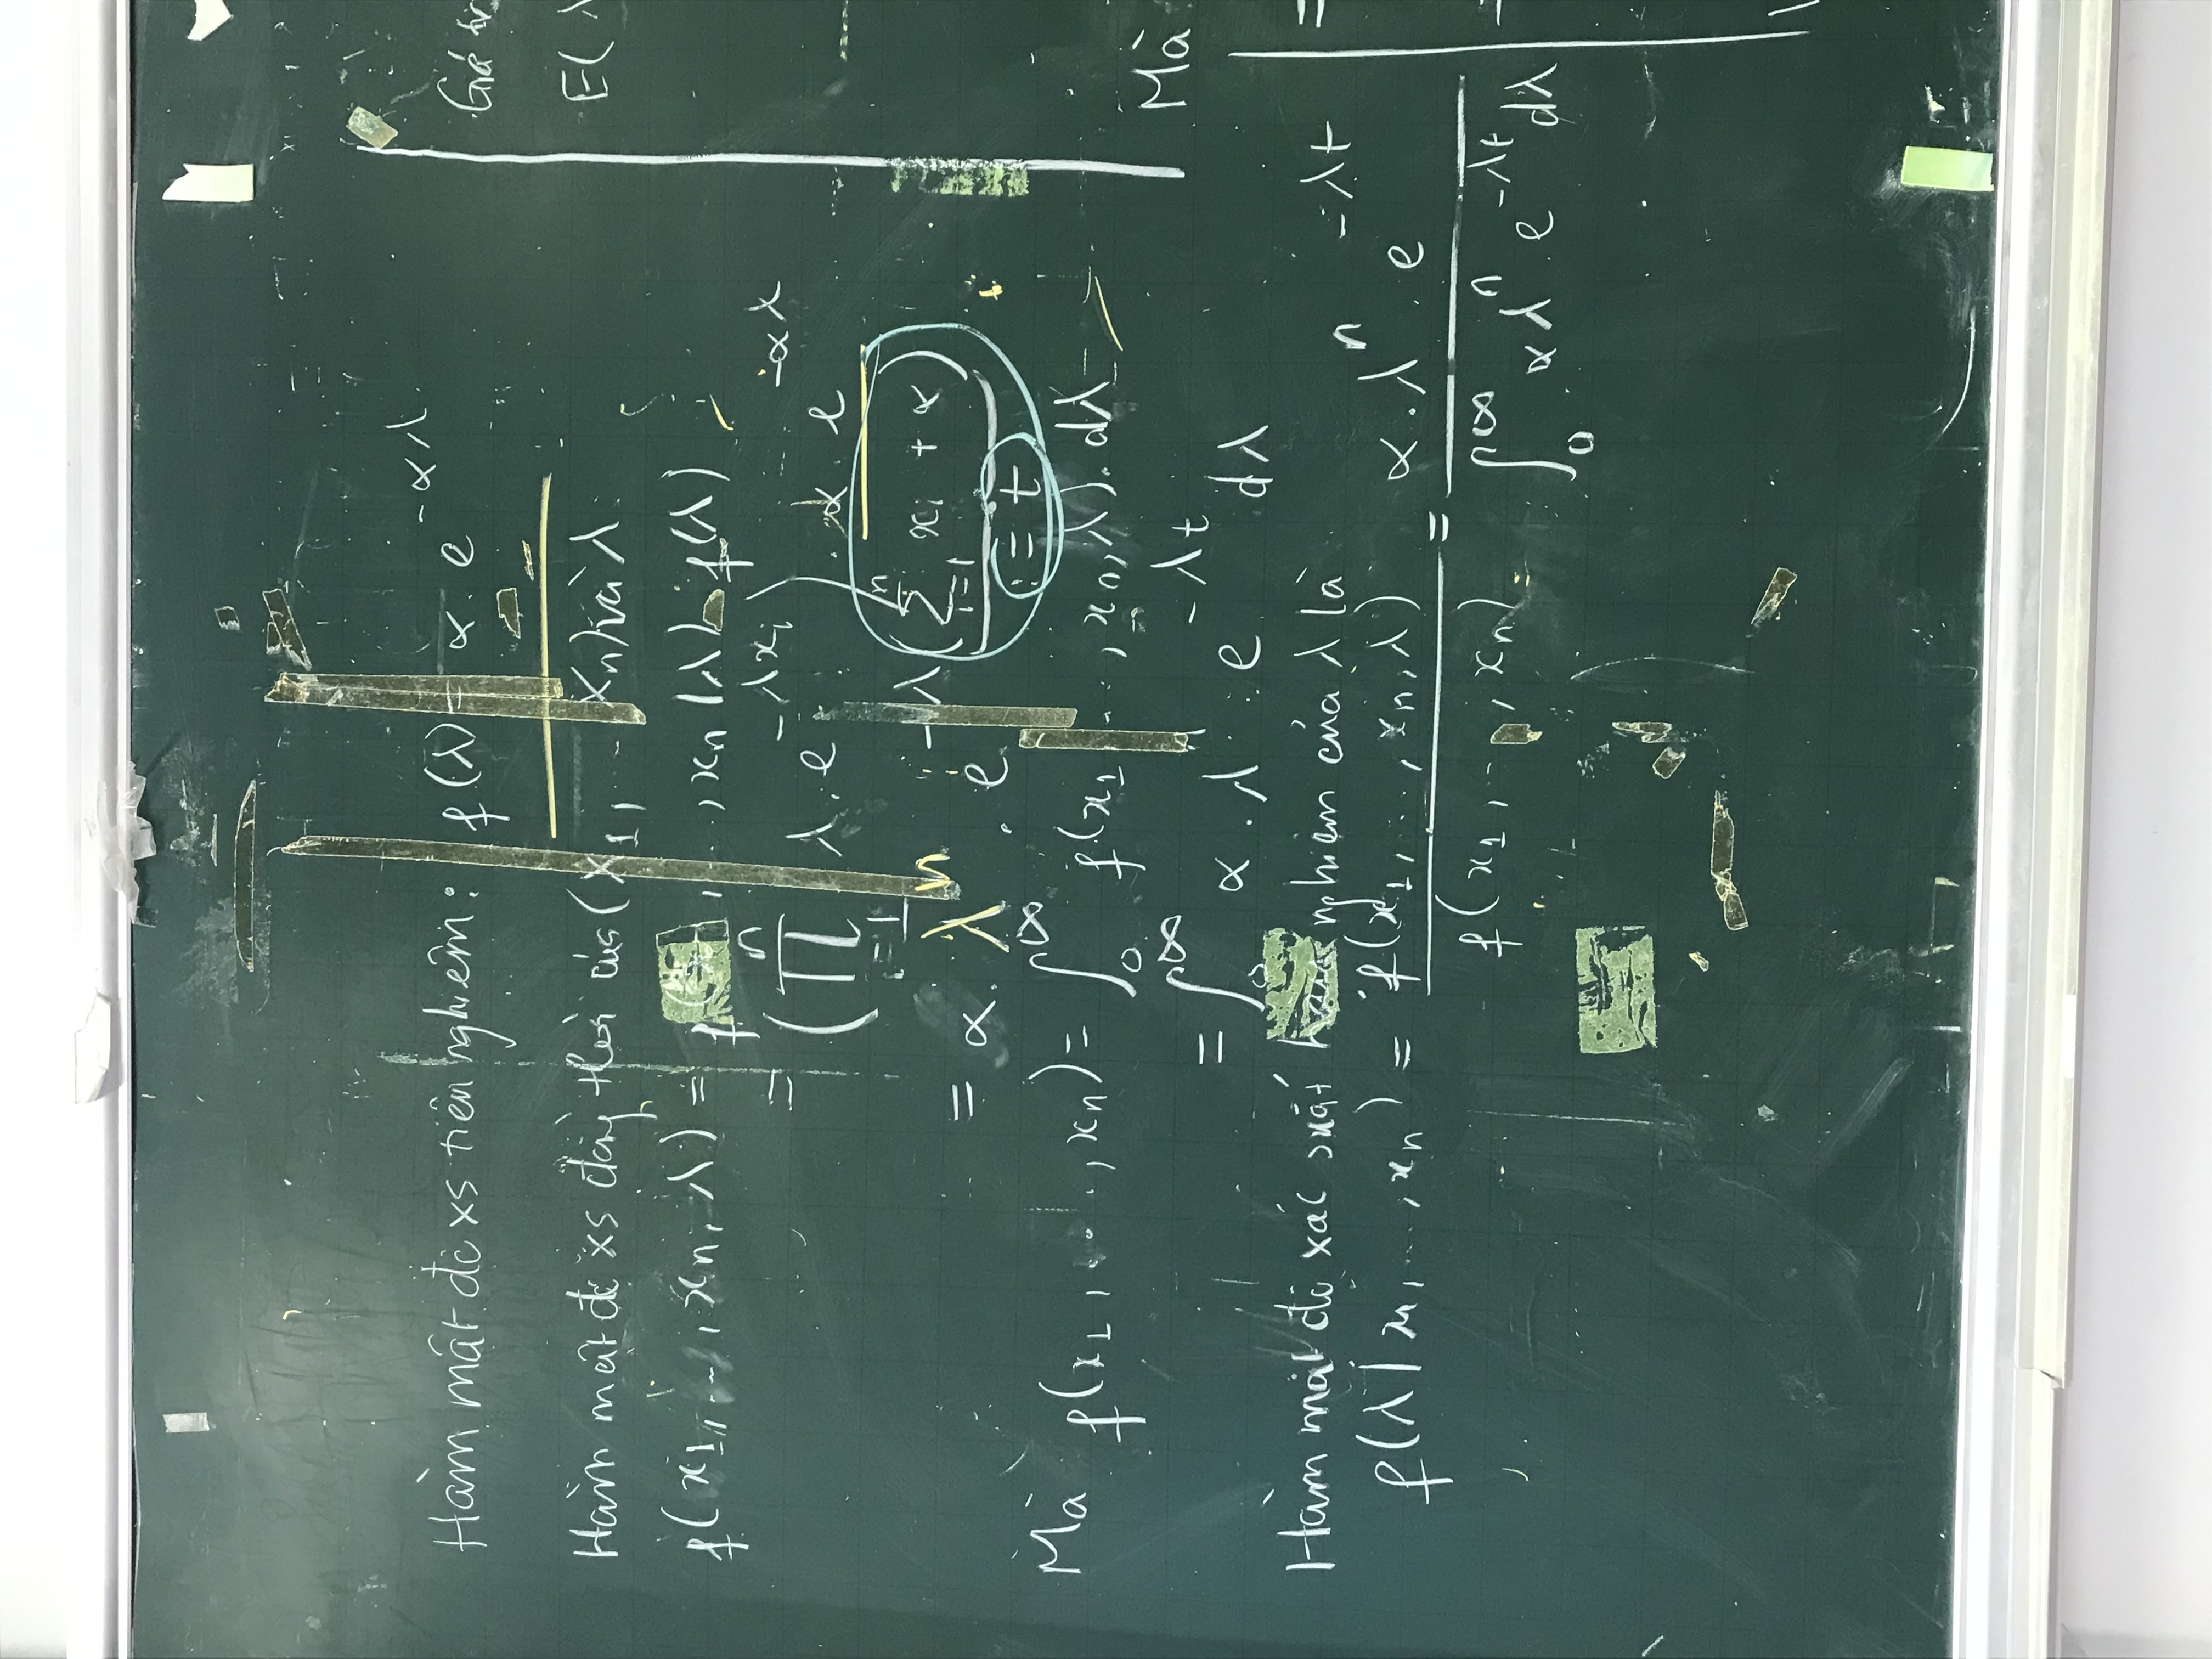 Hàm mật độ xs tiên nghiệm: f(λ) = α. e^{-αλ}
Hàm mật độ xs đồng thời của (X_1, ... X_n) và λ:
f(x_1, ..., x_n, λ) = f(x_1, ..., x_n | λ). f(λ)
= (∏_{i=1}^{n} λ. e^{-λx_i}). α. e^{-αλ}
= α. λ^n . e^{-λ(∑_{i=1}^{n} x_i + α)}
:= t
Mà f(x_1, ..., x_n) = ∫_0^∞ f(x_1, ..., x_n, λ). dλ
= ∫_0^∞ α . λ^n . e^{-λt} dλ
Hàm mật độ xác suất hậu nghiệm của λ là
f(λ | x_1, ..., x_n) = f(x_1, ..., x_n, λ) / f(x_1, ..., x_n) = α . λ^n . e^{-λt} / ∫_0^∞ α λ^n e^{-λt} dλ
Giá
E(λ
Mà
=